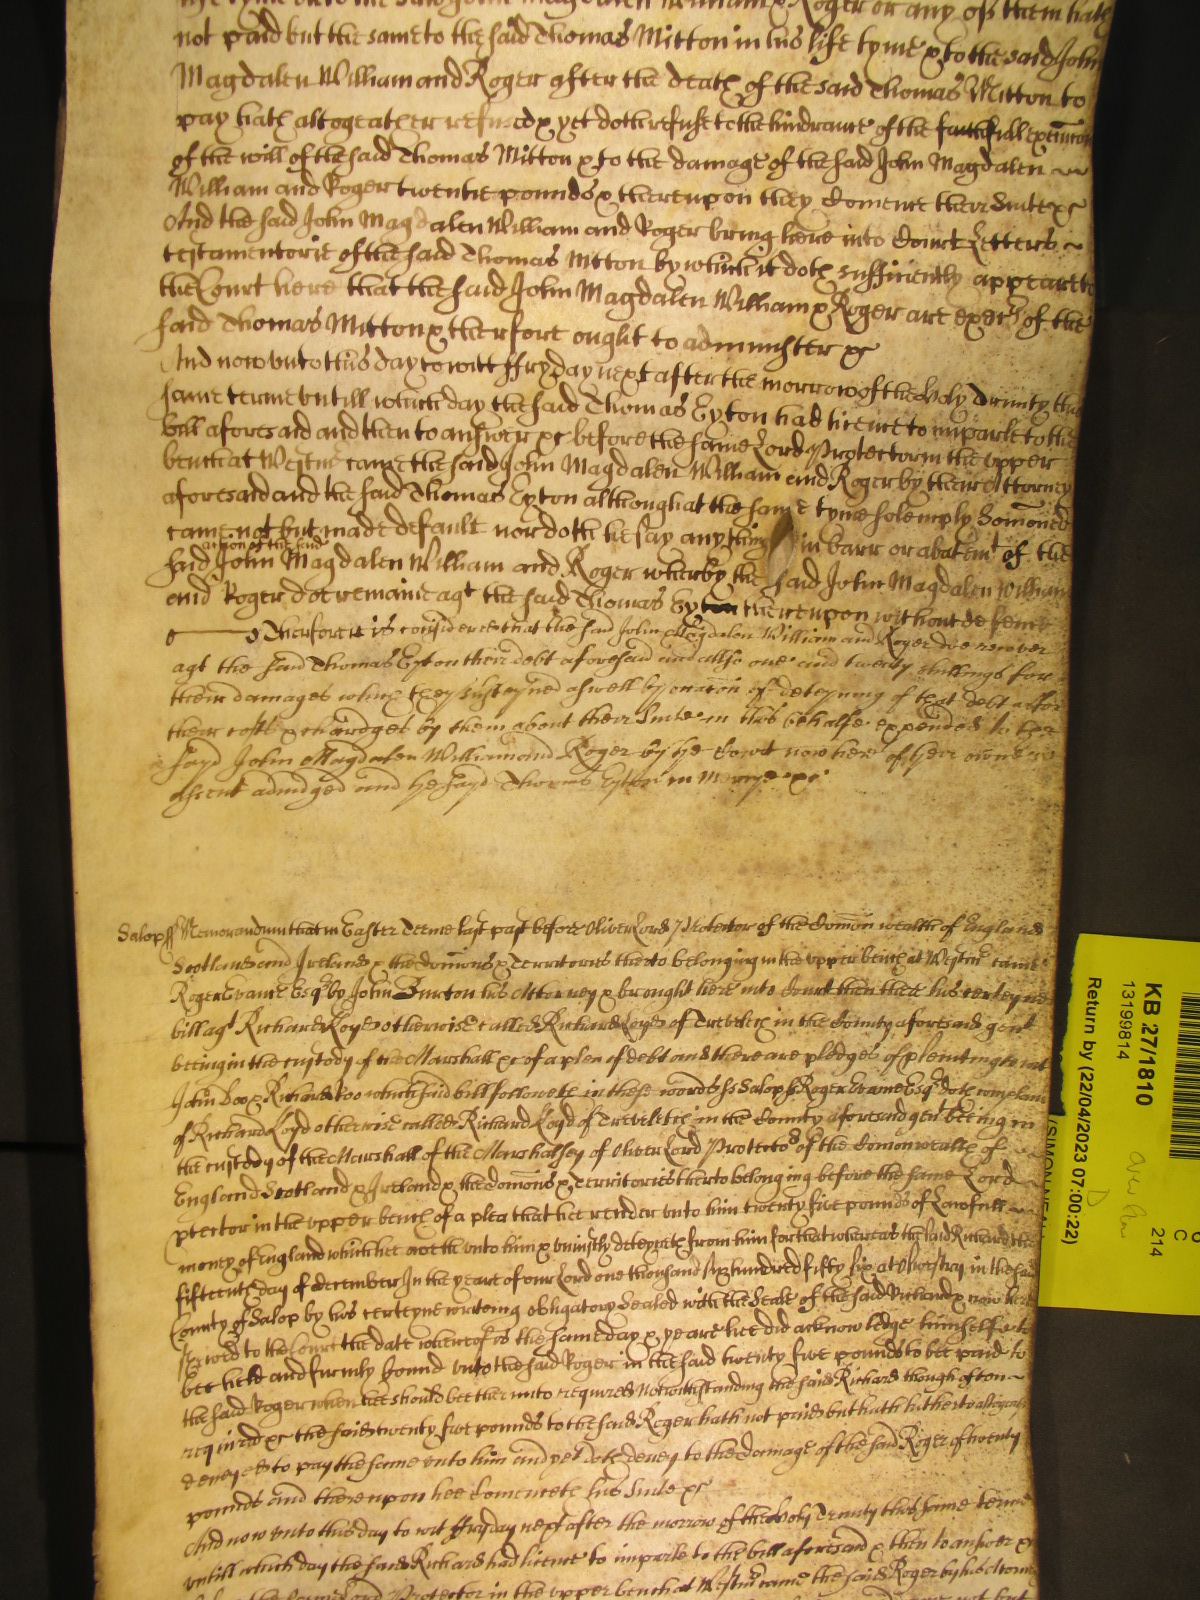 not paid but the same to the said Thomas Mitton in his life tyme & to the said John
Magdalen William and Roger after the death of the said Thomas Mitton to
pay hath altogeather refused & yet doth refuse to the hindrance of the faithfull execucion
of the will of the said Thomas Mitton & to the damage of the said John Magdalen
William and Roger twentie pounds & thereupon they comence their Suite &c
And the said John Magdalen William and Roger bring here into Court Letters
testamentorie of the said Thomas Mitton by which it doth sufficiently appeare to
the Court here that the said John Magdalen William & Roger are exec of the
said Thomas Mitton & therfore ought to administer &c
And now unto this day to witt ffryday next after the morrow of the Holy Trinity this
same terme untill which day the said Thomas Eyton had licence to imparle to the
bill aforesaid and then to answer &c before the same Lord Protector in the upper
bench at Westm came the said John Magdalen William and Roger by their Attorney
aforesaid and the said Thomas Eyton although at the same tyme solemply Somoned
came not but made default nor doth he say any thing in barr or abatemt of the
action of the said
said John Magdalen William and Roger wherby the said John Magdalen William
and Roger doe remaine agt the said Thomas Eyton thereupon without defence
Therfore it is considered that the said John Magdalen William and Roger doe recover
agt the said Thomas Eyton their debt aforesaid and allso one and twenty shillings for
their damages which they susteyned aswell by occation of deteyning of that debt as for
their costs & chardges by them about their Suite in this behalfe expended to the
sayd John Magdalen William and Roger by the Court now here of their owne
assent adiudged and the sayd Thomas Eyton in Mercye &c
Salop ss Memorandum that in Easter Terme last past before Oliver Lord Protector of the Comon wealth of England
Scotland and Ireland & the domions & Territories thereto belonging in the upper bench at Westm came
Roger Esq by John Burton his Attorney & brought here into Court then there his certeyne
bill agt Richard Loyd otherwise called Richard Loyd of in the County aforesaid gent
beeing in the custody of the Marshall &c of a plea of debt and there are pledges of plainting to wit
John Doo & Richard Roo which said bill followeth in these words ss Salop ss Roger Esq doth complaine
of Richard Loyd otherwise called Richard Loyd of in the County aforesaid gen beeing in
the custody of the Marshall of the Marshalsey of Oliver Lord Protector of the Comonwealth of
England Scotland & Ireland & the domions & Territories therto belonging before the same Lord
ptector in the upper bench of a plea that hee render unto him twenty five pounds of Lawfull
money of England which hee oweth unto him & uniustly deteyneth from him for that whereas the said Richard the
fifteenth day of december In the yeare of our Lord one thousand six hundred fifty six at Oswestry in the said
County of Salop by his certeyne writeing obligatory Sealed with the Seale of the said Richard & now here
shewed to the Court the date whereof is the same day & yeare hee did acknowledge himselfe to
bee held and firmly bound unto the said Roger in the said twenty five pounds to bee paid to
the said Roger when hee should bee there unto required Notwithstanding the said Richard though often
required &c the said twenty five pounds to the said Roger hath not paid but hath hitherto altogeather
denyed to pay the same unto him and yet doth deney to the damage of the said Roger of twenty
pounds and thereupon hee comenceth his Suite &c
And now unto this day to wit ffryday next after the morrow of the Holy Trinity this same terme
untill which day the said Richard had licence to imparle to the bill aforesaid & then to answer &c
Protector in the upper bench at Westm came the said Roger by his Attorney
KB 27/1810
13199814
Return by (22/04/2023 07:00:22)
214
C